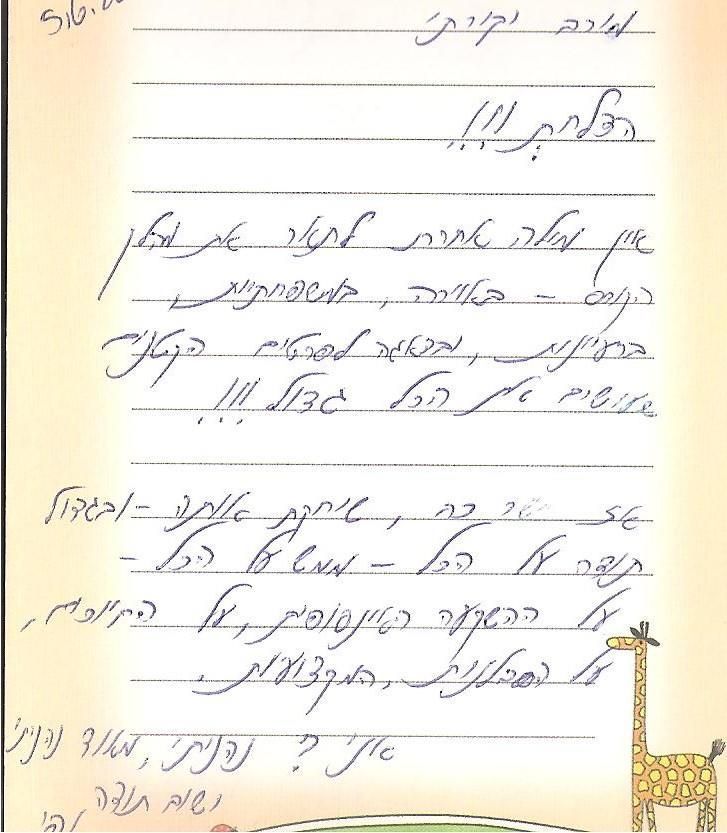 מירב יקרתי
הצלחת !!!
אין מילה אחרת לתאר את מהלך
הקורס – באוירה, במשפחתיות,
ברעיונות, ובדאגה לפרטים הקטנים
שעושים את הכל גדול !!!
אז ישר כח, שיחקת אותה – ובגדול
תודה על הכל – ממש על הכל –
על ההשקעה האינסופית, על החיוכים,
על הסבלנות, המקצועיות.
אני ? נהניתי, מאוד נהניתי
ישום תודה